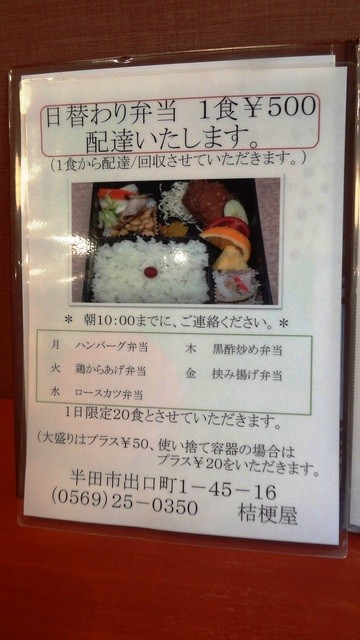 日替わり弁当 1食￥500
配達いたします。
(1食から配達/回収させていただきます。)
* 朝10:00までに、ご連絡ください。*
月 ハンバーグ弁当 木 黒酢炒め弁当
火 鶏からあげ弁当 金 挟み揚げ弁当
水 ロースカツ弁当
1日限定20食とさせていただきます。
(大盛りはプラス￥50、使い捨て容器の場合は
プラス￥20をいただきます。
半田市出口町1-45-16
(0569)25-0350 桔梗屋